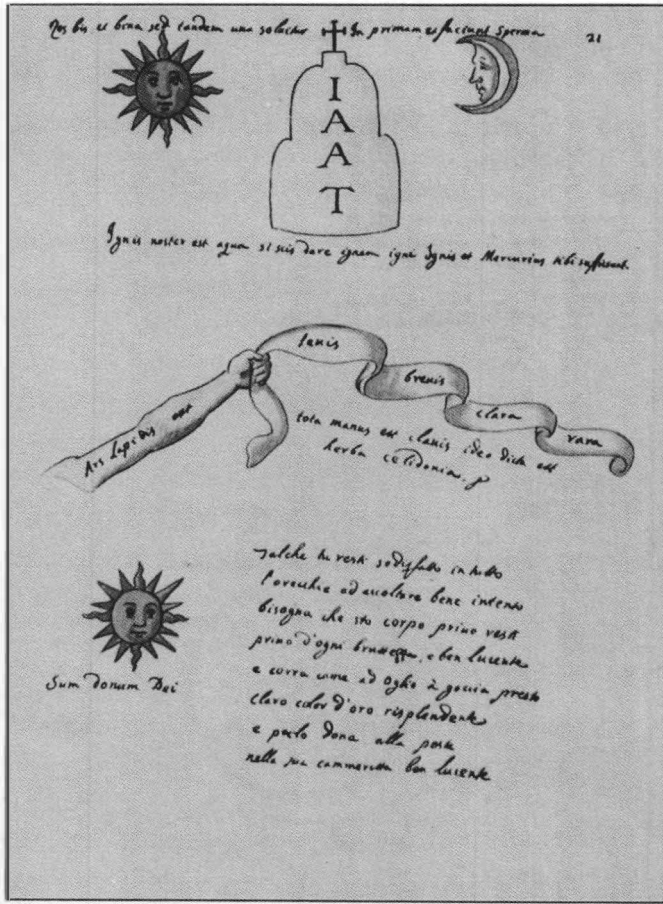 bis et bina sed tandem una solvitur In primam et faciunt Sperma
21
I
A
A
T
Ignis noster est aqua si scis dare ignem igni Ignis et Mercurius tibi sufficiunt
Ars lapidis est
leuis
breuis
clara
rara
tota manus est clauis ideo dicta est
herba celidonia.
talche tu resti sodisfatto in tutto
l'orecchie ad ascoltare bene intento
bisogna che sto corpo primo resti
primo d'ogni bruttezza, e ben lucente
e corra come ad oglio à goccia presto
claro color d'oro risplendente
e dona alla
nella sua cammeretta ben lucente
Sum donum Dei